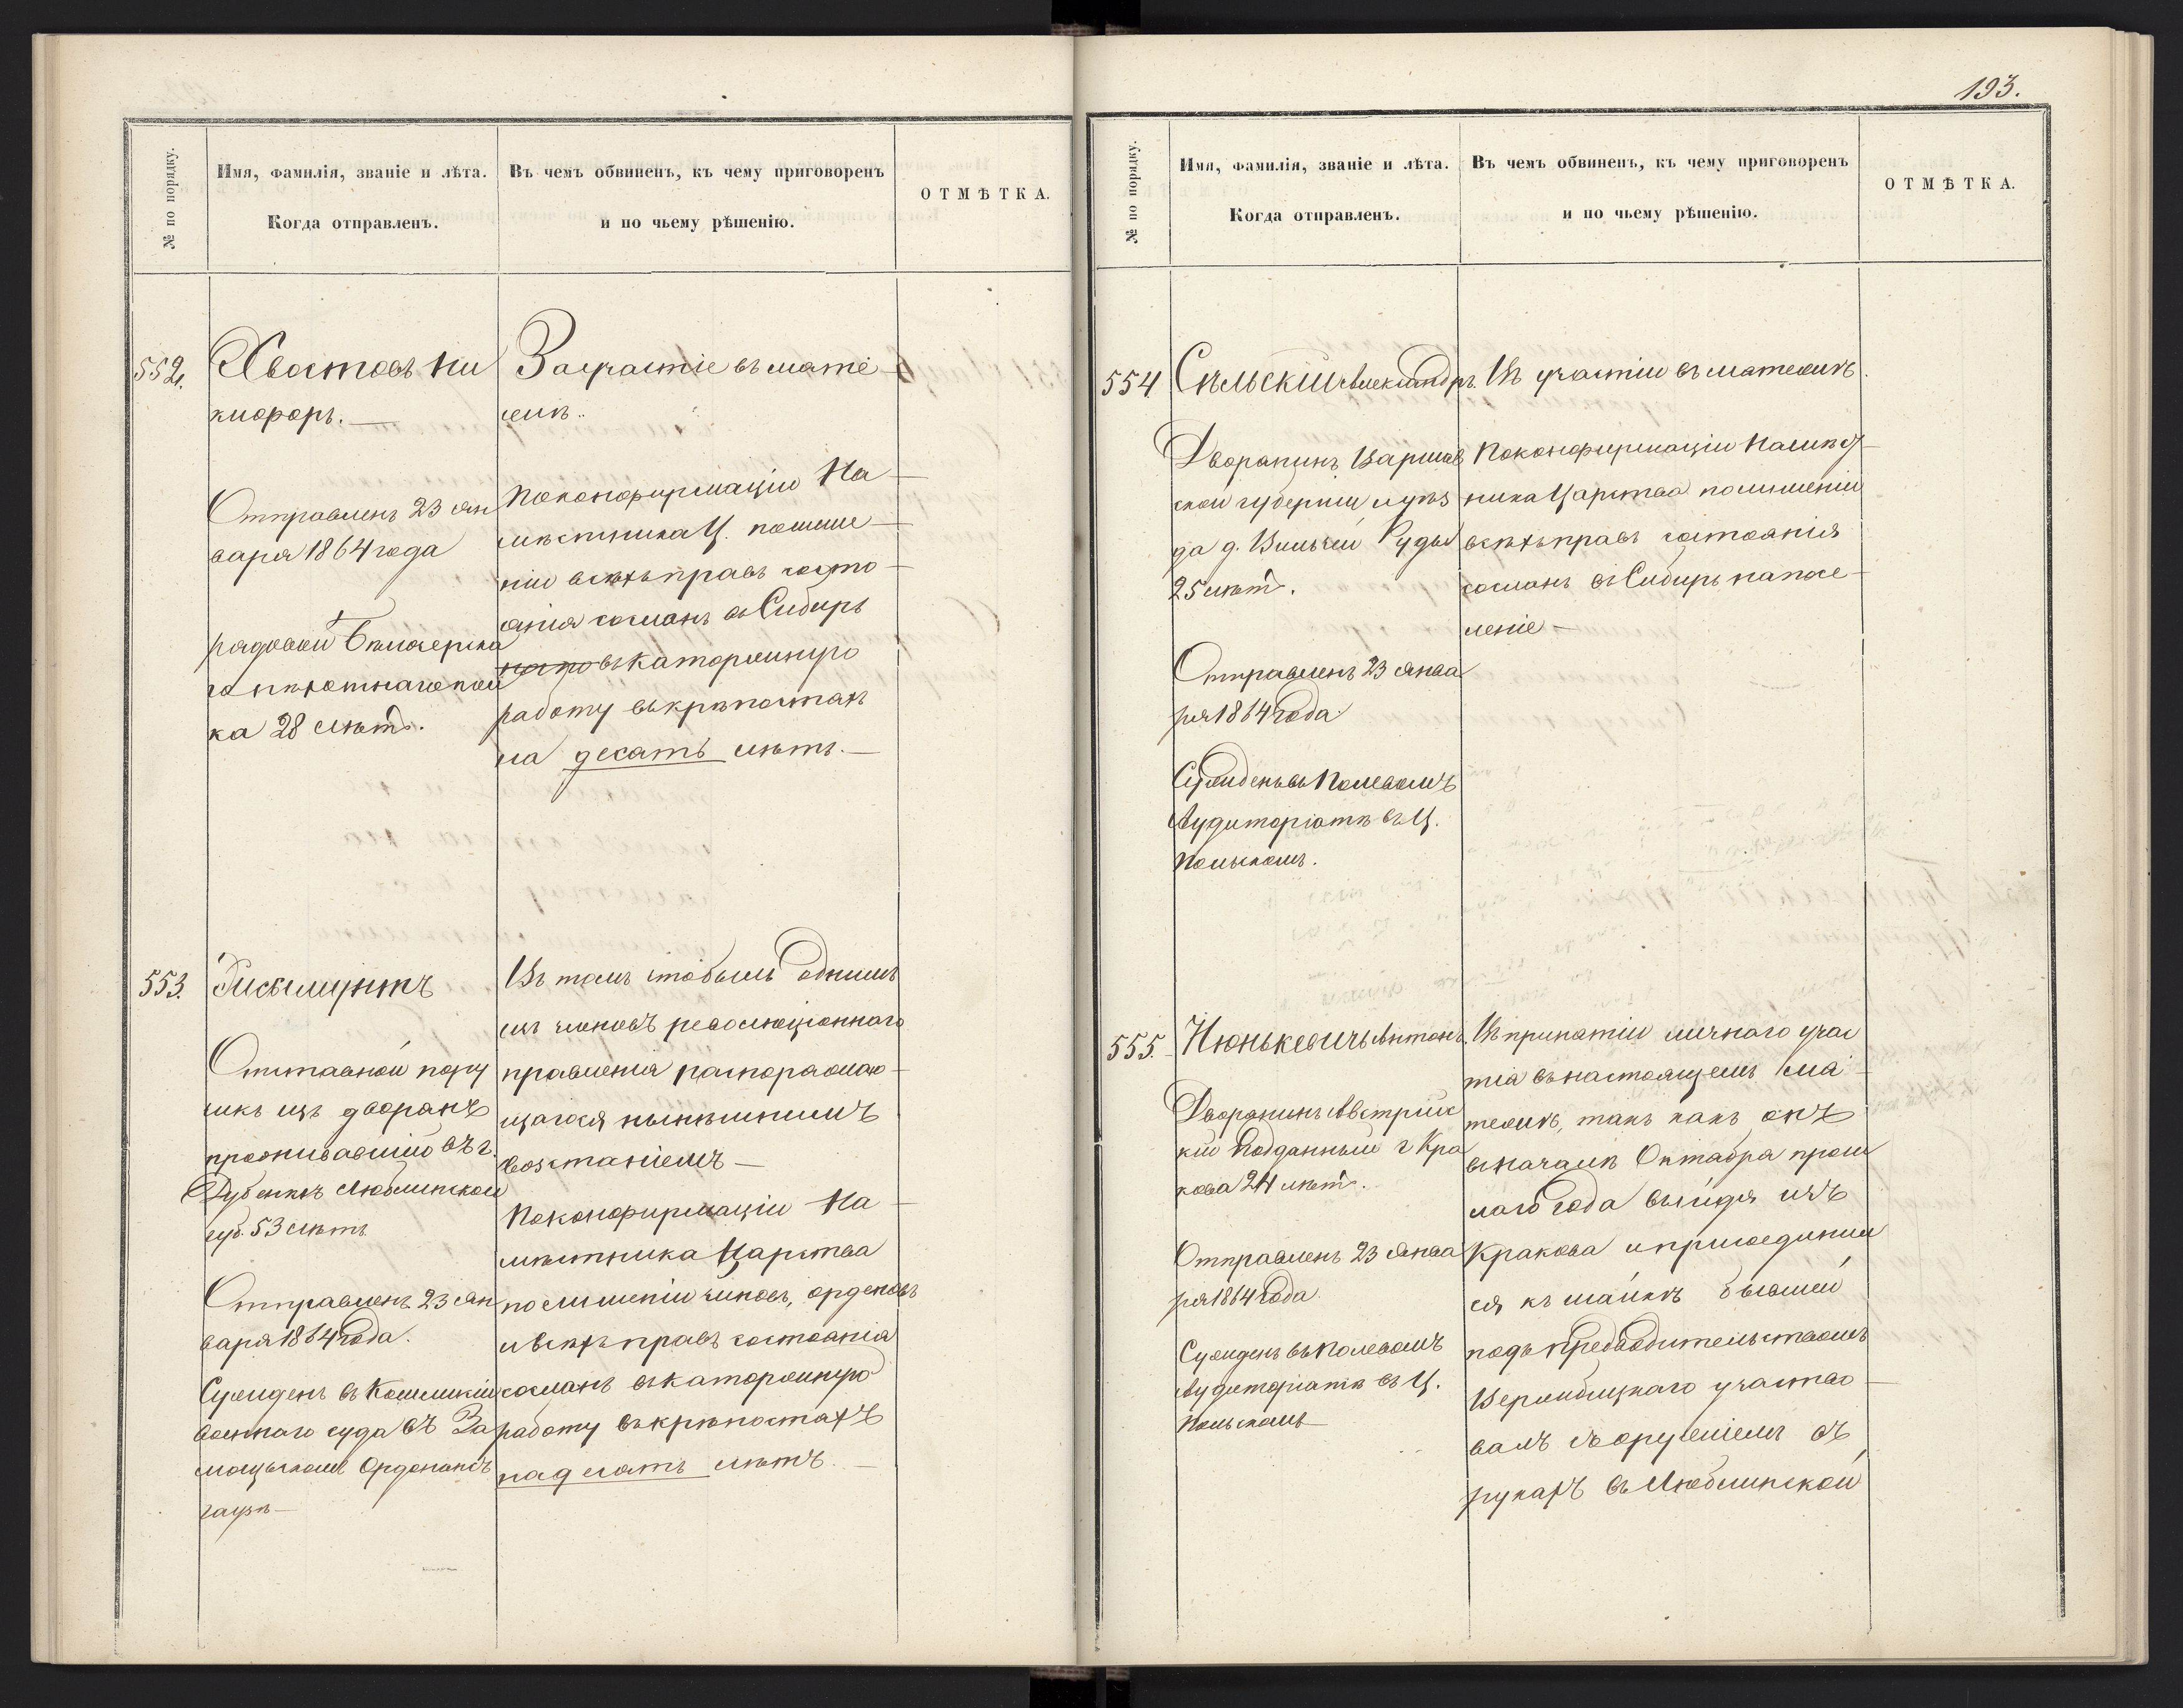 № по порядку.
Имя, фамилія, званіе и лѣта.
Когда отправленъ.
Въ чемъ обвиненъ, къ чему приговоренъ
и по чьему рѣшенію.
ОТМѢТКА.
552.
Хвостовъ Ни
кифоръ.
Отправленъ 23 Ян
варя 1864 года
рядовой Бѣлозерска
го пѣхотнаго пол
ка 28 лѣтъ.
За участіе въ мяте
жѣ.
По конфирмаціи На
мѣстника Ц. по лише
ніи всѣхъ правъ состо
янія сосланъ въ Сибирь
въ каторжную
работу въ крѣпостяхъ
на десять лѣтъ.
553.
Отставной пору
чикъ изъ дворянъ
проживавшій въ г.
Дубенкѣ Люблинской
губ. 53 лѣтъ
Отправленъ 23 Ян
варя 1864 года.
Сужденъ въ Коммиссіи
военнаго суда въ За
мосцьскомъ Орденансъ
гаузѣ
Въ томъ что былъ однимъ
изъ членовъ революціоннаго
правленія распоряжаю
щагося нынѣшнимъ
возстаніемъ
По конфирмаціи На
мѣстника Царства
по лишеніи чиновъ, орденовъ
и всѣхъ правъ состоянія
сосланъ въ каторжную
работу въ крѣпостяхъ
на десять лѣтъ.
193.
№ по порядку.
Имя, фамилія, званіе и лѣта.
Когда отправленъ.
Въ чемъ обвиненъ, къ чему приговоренъ
и по чьему рѣшенію.
ОТМѢТКА.
554.
Сѣльскій Александръ.
Дворянинъ Варшав
ской губерніи и уѣз
да д. Вильчей Руды
25 лѣтъ.
Отправленъ 23 Янва
ря 1864 года.
Сужденъ въ Полевомъ
Аудиторіатѣ въ Ц.
Польскомъ.
Въ участіи въ мятежѣ.
По конфирмаціи Намѣст
ника Царства по лишеніи
всѣхъ правъ состоянія
сосланъ въ Сибирь на посе
леніе
555.
Нюнькевичъ Антонъ.
Дворянинъ Австрійс
кій подданный г. Кра
кова 24 лѣтъ.
Отправленъ 23 Янва
ря 1864 года.
Сужденъ въ Полевомъ
Аудиторіатѣ въ Ц.
Польскомъ
Въ принятіи личнаго учас
тія въ настоящемъ мя
тежѣ, такъ какъ онъ
въ началѣ Октября прош
лаго года выйдя изъ
Кракова и присоединив
ся къ шайкѣ бывшей
подъ предводительствомъ
Вержбицкаго участво
валъ съ оружіемъ въ
рукахъ въ Люблинской